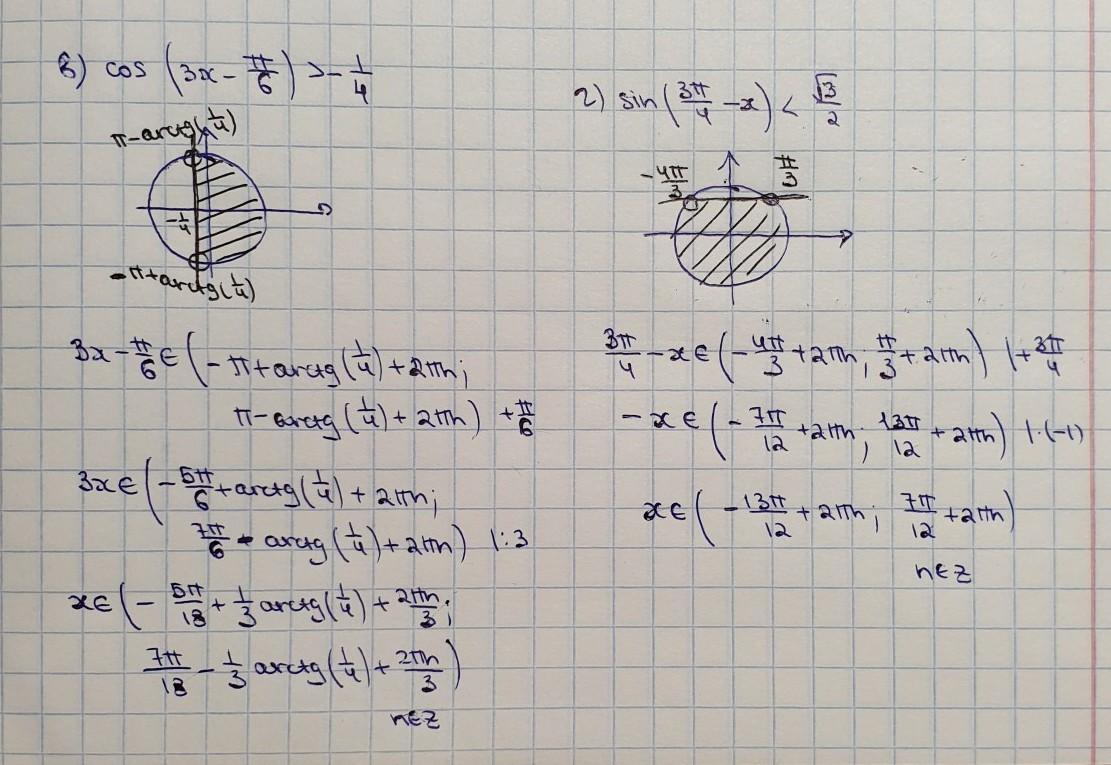 в) cos (3x - π/6) > -1/4
π-arctg(1/4)
-1/4
-π+arctg(1/4)
3x - π/6 ∈ (-π+arctg(1/4)+2πn;
π-arctg(1/4)+2πn) +π/6
3x ∈ (-5π/6+arctg(1/4)+2πn;
7π/6 - arctg(1/4)+2πn) |:3
x ∈ (-5π/18 + 1/3 arctg(1/4) + 2πn/3;
7π/18 - 1/3 arctg(1/4) + 2πn/3)
n∈Z
г) sin(3π/4 - x) < √3/2
-4π/3
π/3
3π/4 - x ∈ (-4π/3 + 2πn; π/3 + 2πn) |+3π/4
-x ∈ (-7π/12 + 2πn; 13π/12 + 2πn) |·(-1)
x ∈ (-13π/12 + 2πn; 7π/12 + 2πn)
n∈Z